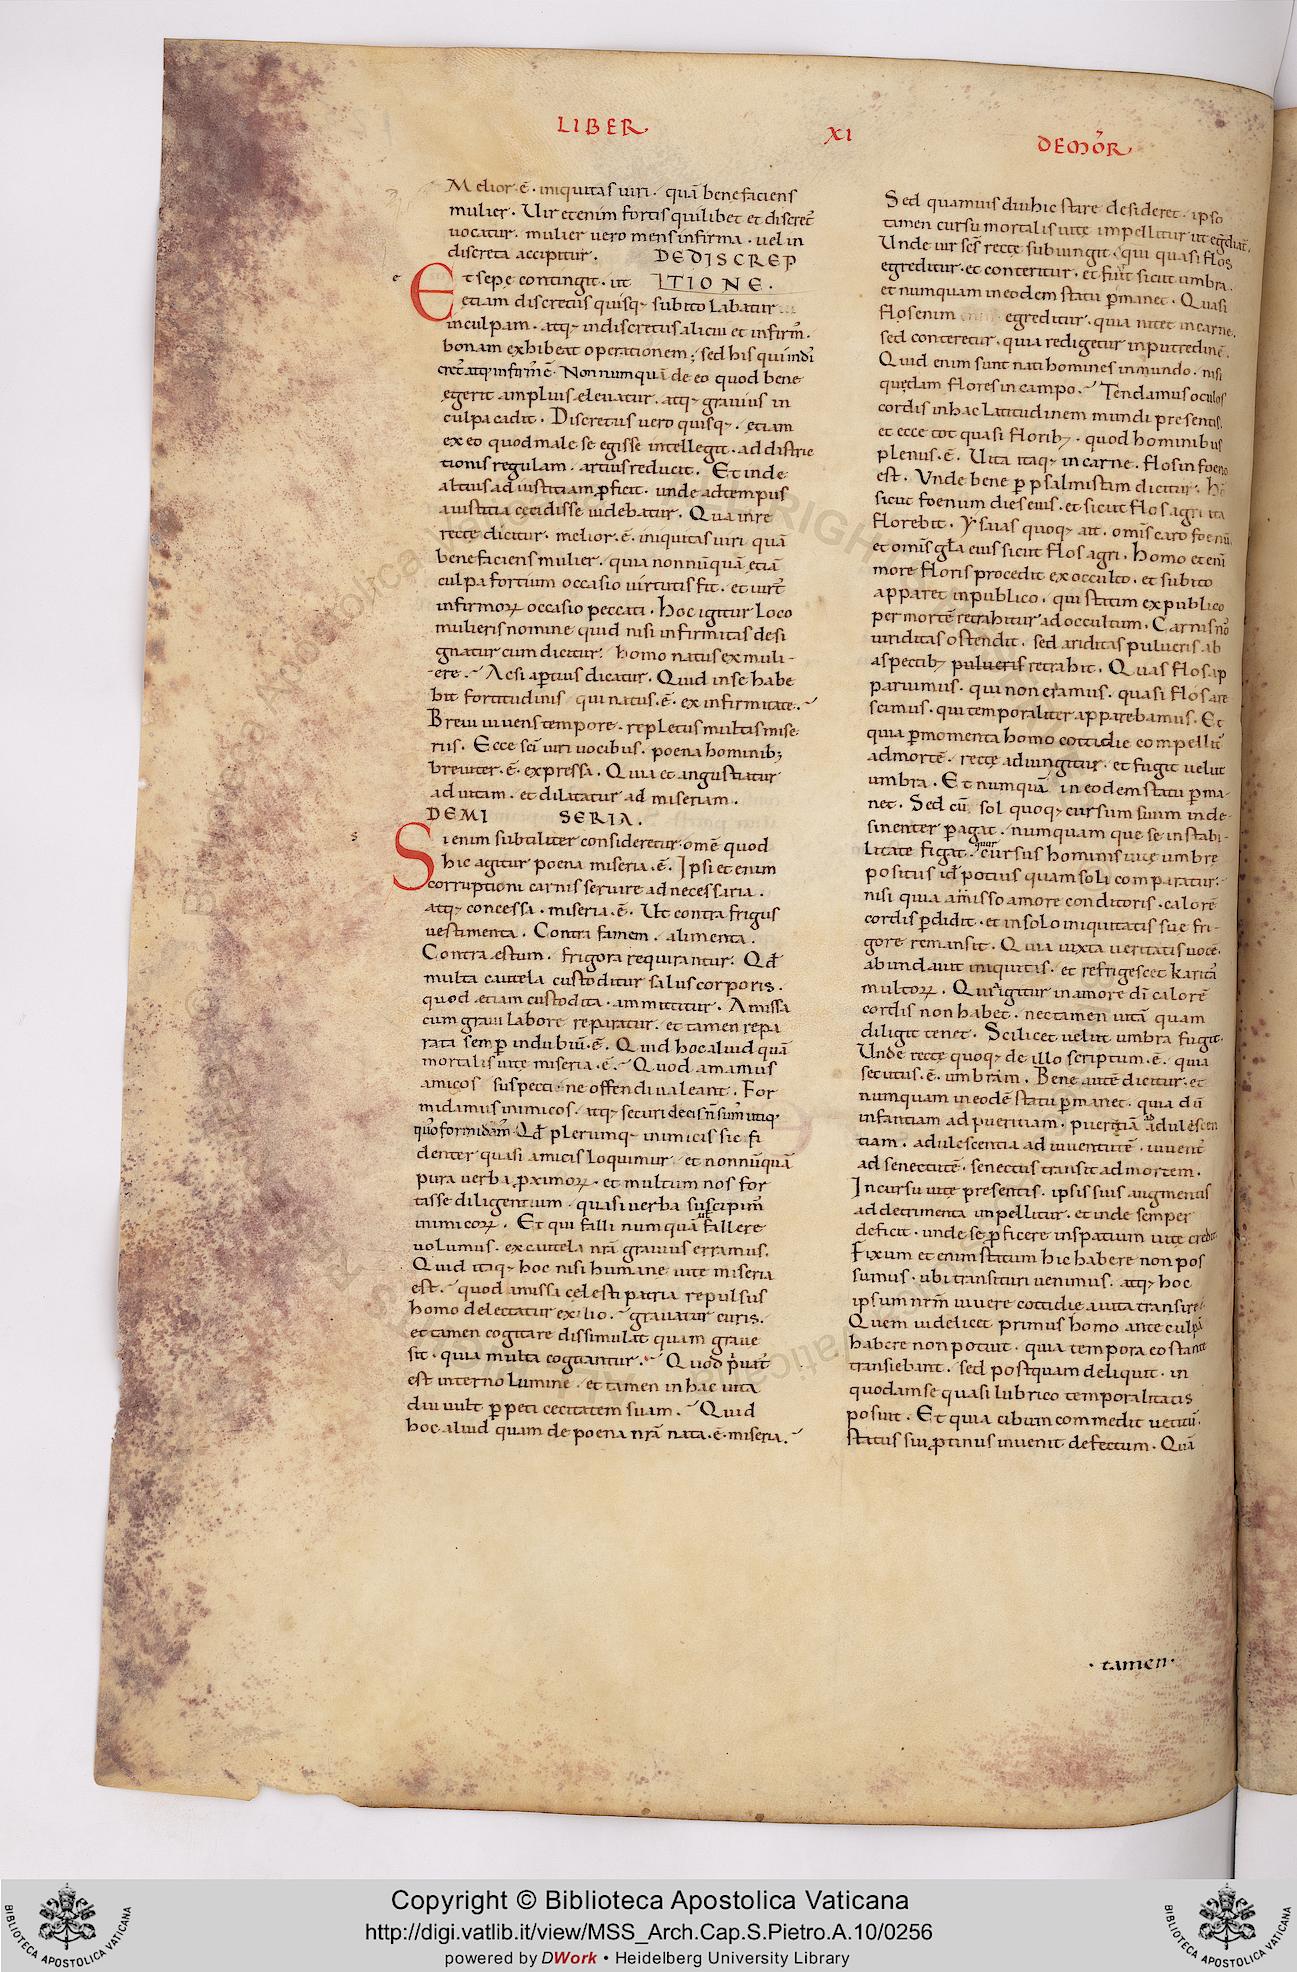 LIBER XI DEMOR̄
Melior·ē· iniquitas uiri· quā benefaciens
mulier· Uir etenim fortis quilibet et discret̄
uocatur· mulier uero mens infirma· uel in
discreta accipitur· DE DISCREP
Et sepe contingit· ut ITIONE·
etiam discretus quisq; subito labatur
in culpam· atq; indiscretus alicui et infirm̄·
bonam exhibeat operationem; sed his qui indi
cret̄ atq; infirm̄ ē· Non numquā de eo quod bene
egerit amplius eleuatur· atq; grauius in
culpa cadit· Discretus uero quisq;· etiam
ex eo quod male se egisse intellegit· ad distric
tionis regulam· artius reducit· Et inde
altius ad iustitiam ꝓficit· unde ad tempus
a iustitia cecidisse uidebatur· Qua in re
recte dicitur· melior·ē· iniquitas uiri quā
benefaciens mulier· quia nonnūquā etiā
culpa fortium occasio uirtutis fit· et uirt̄
infirmoꝝ occasio peccati· Hoc igitur loco
mulieris nomine quid nisi infirmitas desi
gnatur cum dicitur· homo natus ex muli-
-ere· Ac si aꝑtius dicatur· Quid in se habe
bit fortitudinis qui natus·ē· ex infirmitate·
Breui uiuens tempore· repletus multis mise
riis· Ecce sc̄i uiri uocibus· poena hominib;
breuiter·ē· expressa· Quia et angustiatur
ad uitam· et dilatatur ad miseriam·
DE MI SERIA·
Si enim subtiliter consideretur· omē quod
hic agitur poena miseria·ē· Ipsi etenim
corruptioni carnis seruire ad necessaria·
atq; concessa· miseria·ē· Ut contra frigus
uestimenta· Contra famem· alimenta·
Contra estum· frigora requirantur· Qd̄
multa cautela custoditur salus corporis·
quod etiam custodita· ammittitur· Amissa
cum graui labore reparatur· et tamen repa
rata semꝑ in dubiū·ē· Quid hoc aliud quā
mortalis uite miseria·ē· Quod amamus
amicos suspecti ne offendi ualeant· For
midamus inimicos· atq; securi de eis n̄ sum̄ utiq·
quo formidam̄· Qd̄ plerumq; inimicis sic fi
denter quasi amicis loquimur et nonnūquā
pura uerba ꝓximoꝝ· et multum nos for
tasse diligentium· quasi uerba suscipim̄
inimicoꝝ· Et qui falli numquā uel fallere
uolumus· ex cautela nr̄a grauius erramus·
Quid itaq; hoc nisi humane uite miseria
est· quod amissa celesti patria repulsus
homo delectatur exilio· grauatur curis·
et tamen cogitare dissimulat quam graue
sit· quia multa cogitantur· Quod p̄uat̄
est interno lumine et tamen in hac uita
diu uult ꝑpeti cecitatem suam· Quid
hoc aliud quam de poena nr̄a nata·ē· miseria·
Sed quamuis diu hic stare desideret· ipso
tamen cursu mortalis uite impellitur ut egrediat̄·
Unde uir sc̄s recte subiungit· qui quasi flos
egreditur· et conteritur· et fugit sicut umbra·
et numquam in eodem statu ꝑmanet· Quasi
flos enim egreditur· quia nitet in carne·
sed conteretur· quia redigetur in putredinē·
Quid enim sunt nati homines in mundo· nisi
quedam flores in campo· Tendamus oculos
cordis in hac latitudinem mundi presentis·
et ecce tot quasi florib;· quod hominibus
plenus·ē· Uita itaq; in carne· flos in foeno
est· Unde bene ꝑ psalmistam dicitur· Hō
sicut foenum dies eius· et sicut flos agri ita
florebit· Ysaias quoq; ait· omīs caro foenū·
et omīs gl̄a eius sicut flos agri· Homo etenī
more floris procedit ex occulto· et subito
apparet in publico· qui statim ex publico
per mortē retrahitur ad occultum· Carnis nō
uiriditas ostendit· sed ariditas pulueris ab
aspectib; pulueris retrahit· Quasi flos ap
paruimus· qui non eramus· quasi flos are
scimus· qui temporaliter apparebamus· Et
quia ꝑ momenta homo cottidie compellit̄
ad mortē· recte adiungitur· et fugit uelut
umbra· Et numquā in eodem statu ꝑma-
net· Sed cū sol quoq; cursum suum inde-
sinenter ꝑagat· numquam que se in stabi-
litate figat· cur cursus hominis uite umbre
positus id potius quam soli comparatur·
nisi quia amisso amore conditoris· calorē
cordis ꝑdidit· et in solo iniquitatis sue fri-
gore remansit· Quia iuxta ueritatis uocē·
abundauit iniquitas· et refrigescet karitā
multoꝝ· Qui igitur in amore dī calorē
cordis non habet· nec tamen uitā quam
diligit tenet· Scilicet uelut umbra fugit·
Unde recte quoq; de illo scriptum·ē· quia
secutus·ē· umbram· Bene autē dicitur· et
numquam in eodē statu ꝑmanet· quia dū
infantiam ad pueritiam· pueritiā ad adulescen
tiam· adulescentia ad iuuentutē· iuuent̄
ad senectutē· senectus transit ad mortem·
In cursu uite presentis· ipsis suis augmentis
ad detrimenta impellitur· et inde semper
deficit· unde se ꝓficere in spatium uite credit·
Fixum etenim statum hic habere non pos
sumus· ubi transituri uenimus· atq; hoc
ipsum nrm̄ uiuere cottidie a uita transire·
Quem uidelicet primus homo ante culpā
habere non potuit· quia tempora eo stante
transiebant· sed postquam deliquit· in
quodam se quasi lubrico temporalitatis
posuit· Et quia cibum commedit uetitū·
status sui ꝓtinus inuenit defectum· Quā
·tamen·
Copyright © Biblioteca Apostolica Vaticana
http://digi.vatlib.it/view/MSS_Arch.Cap.S.Pietro.A.10/0256
powered by DWork • Heidelberg University Library
BIBLIOTECA APOSTOLICA VATICANA
BIBLIOTECA APOSTOLICA VATICANA